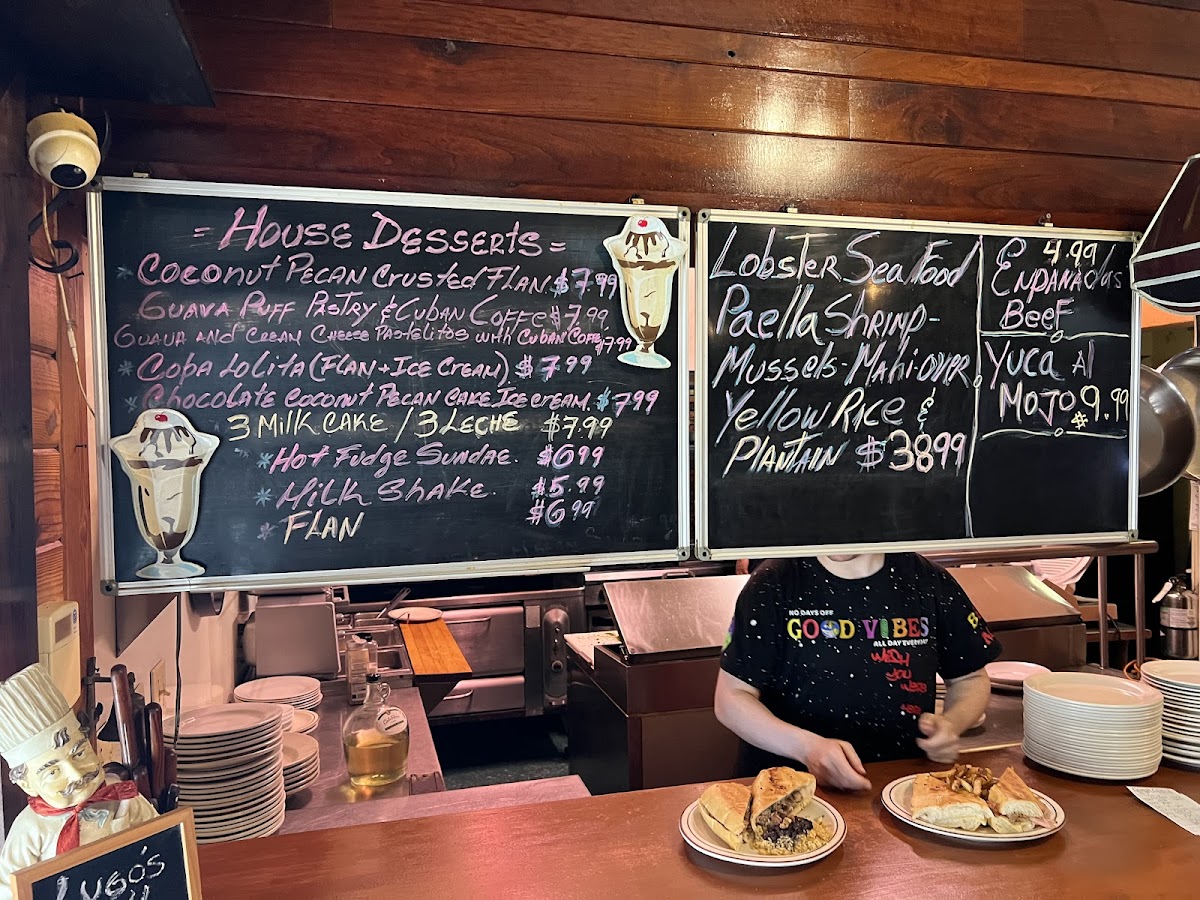 = House Desserts =
* Coconut Pecan Crusted Flan $7.99
Guava Puff Pastry & Cuban Coffe $7.99
Guava and Cream Cheese Pastelitos with Cuban Coffe $7.99
* Copa Lolita (Flan + Ice Cream) $7.99
* Chocolate Coconut Pecan Cake Ice cream. $7.99
3 Milk Cake / 3 Leche $7.99
* Hot Fudge Sundae. $6.99
* Milk Shake. $5.99
* Flan $6.99
Lobster Sea Food
Paella Shrimp-
Mussels-Mahi-over
Yellow Rice &
Plantain $38.99
4.99
Enpanadas
Beef
Yuca Al
Mojo $9.99
NO DAYS OFF
GOOD VIBES
ALL DAY EVERYDAY
WISH
YOU
WERE
HERE
Lugo's